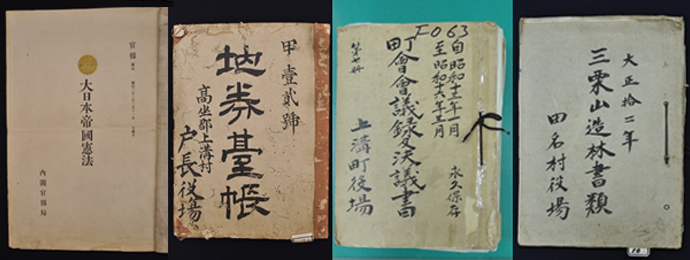 官報
大日本帝國憲法
内閣官報局
甲壹貳號
地券臺帳
高坐郡上溝村
戸長役場
F063
自昭和十三年一月
至昭和十六年三月
永久保存
町會會議録及決議書
第廿冊
上溝町役場
大正拾二年
三栗山造林書類
田名村役場